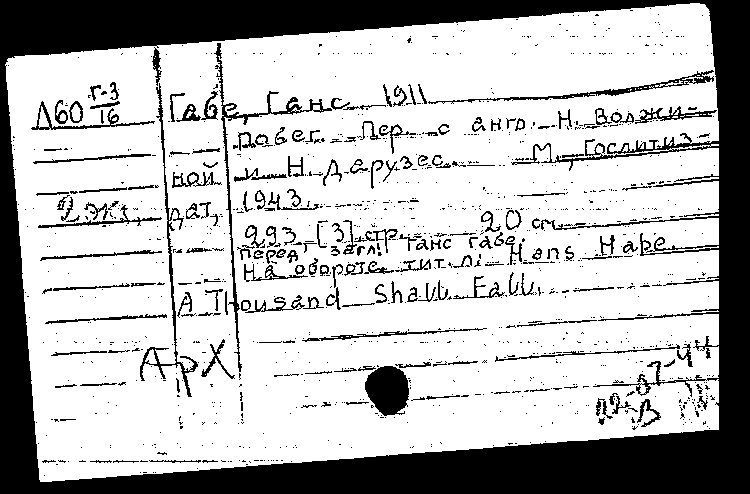 Л60 Г-3/16 Габе, Ганс. 1911
Побег. Пер. с англ. Н. Волжи-
ной и Н. Дарузес. М., Гослитиз-
2 экз. дат, 1943.
293, [3] стр. 20 см.
Перед загл.: Ганс Габе.
На обороте тит. л.: Hans Habe.
A Thousand Shall Fall.
АрХ
-07-44
В